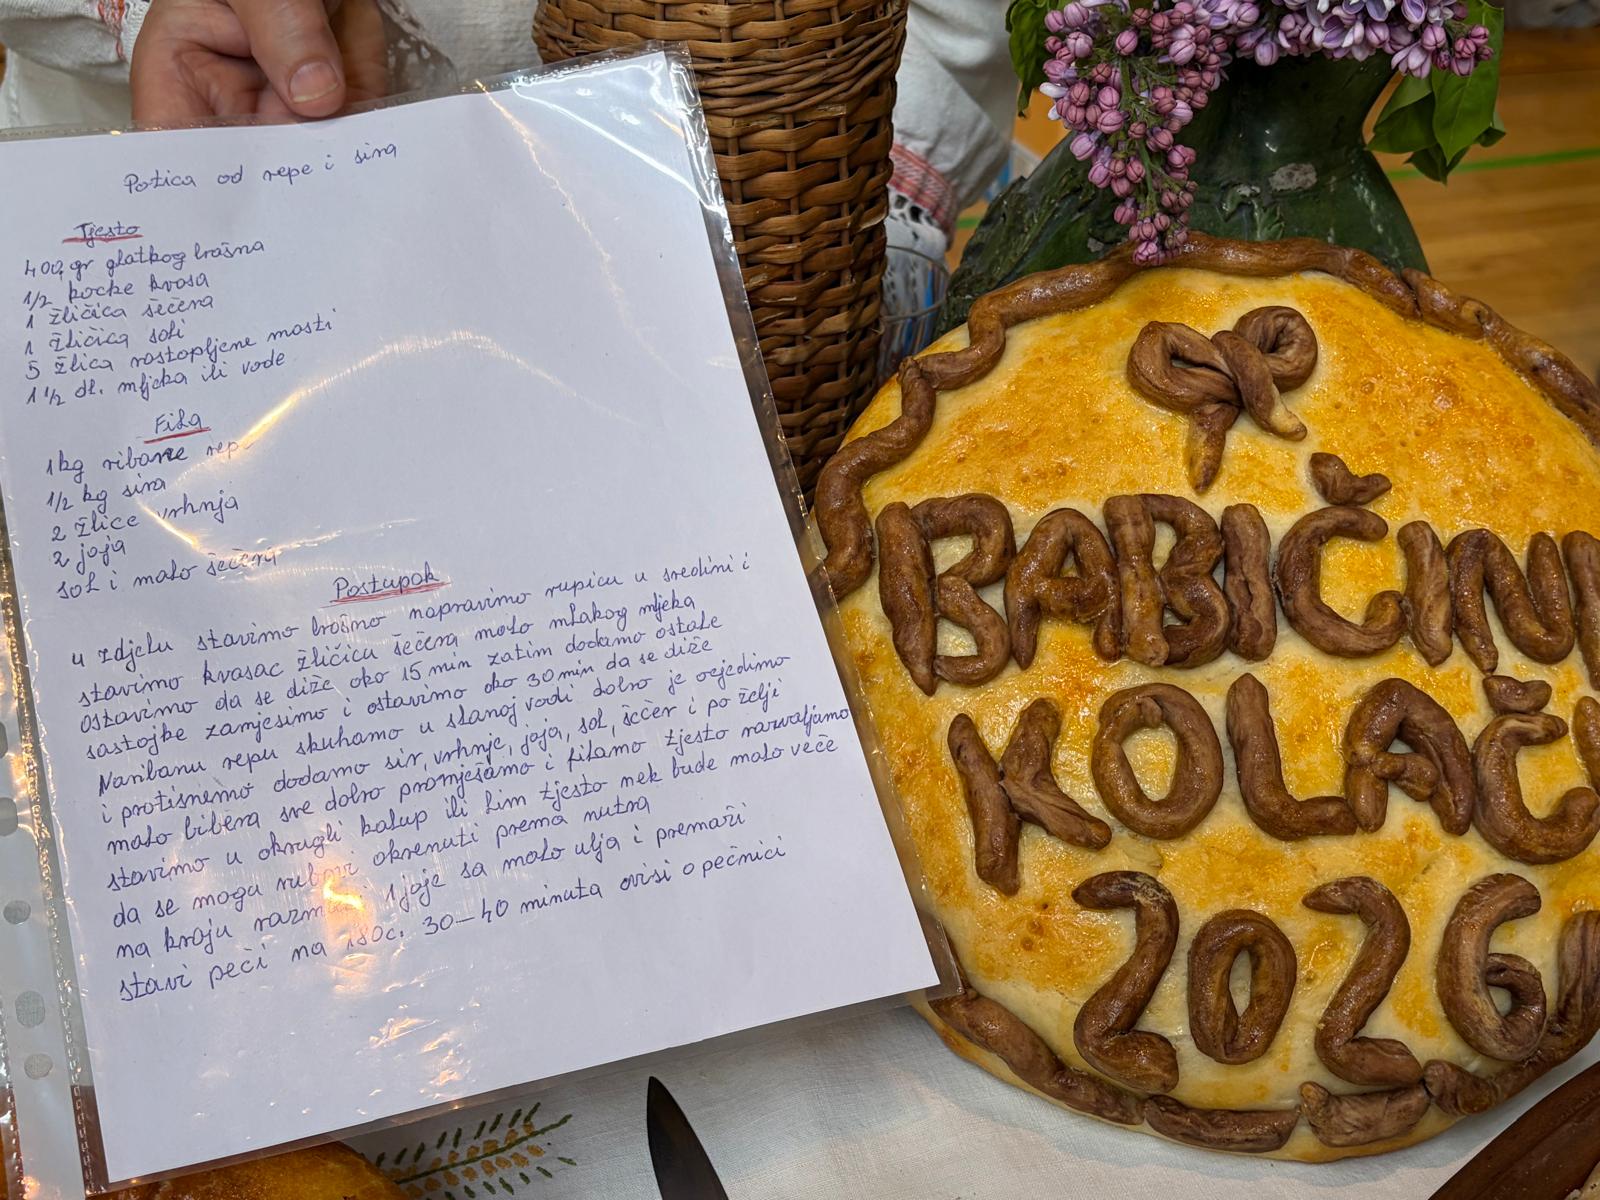 Potica od repe i sira
Tjesto
400 gr glatkog brašna
1/2 kocke kvasa
1 žličica šečera
1 žličica soli
5 žlica rastopljene masti
1 1/2 dl. mljeka ili vode
Fila
1kg ribane rep
1/2 kg sira
2 žlice vrhnja
2 jaja
sol i malo šečera
Postupak
u zdjelu stavimo brašno napravimo rupicu u sredini i
stavimo kvasac žličicu šečera malo mlakog mljeka
ostavimo da se diže oko 15 min zatim dodamo ostale
sastojke zamjesimo i ostavimo oko 30 min da se diže
Naribanu repu skuhamo u slanoj vodi dobro je ocjedimo
i protisnemo dodamo sir, vrhnje, jaja, sol, šečer i po želji
malo bibera sve dobro promješamo i filamo tjesto razvaljamo
stavimo u okrugli kalup ili lim tjesto nek bude malo veče
da se mogu rubovi okrenuti prema nutra
na kraju razmuti 1 jaje sa malo ulja i premaži
stavi peči na 180c. 30-40 minuta ovisi o pečnici
BABIČINI
KOLAČI
2026